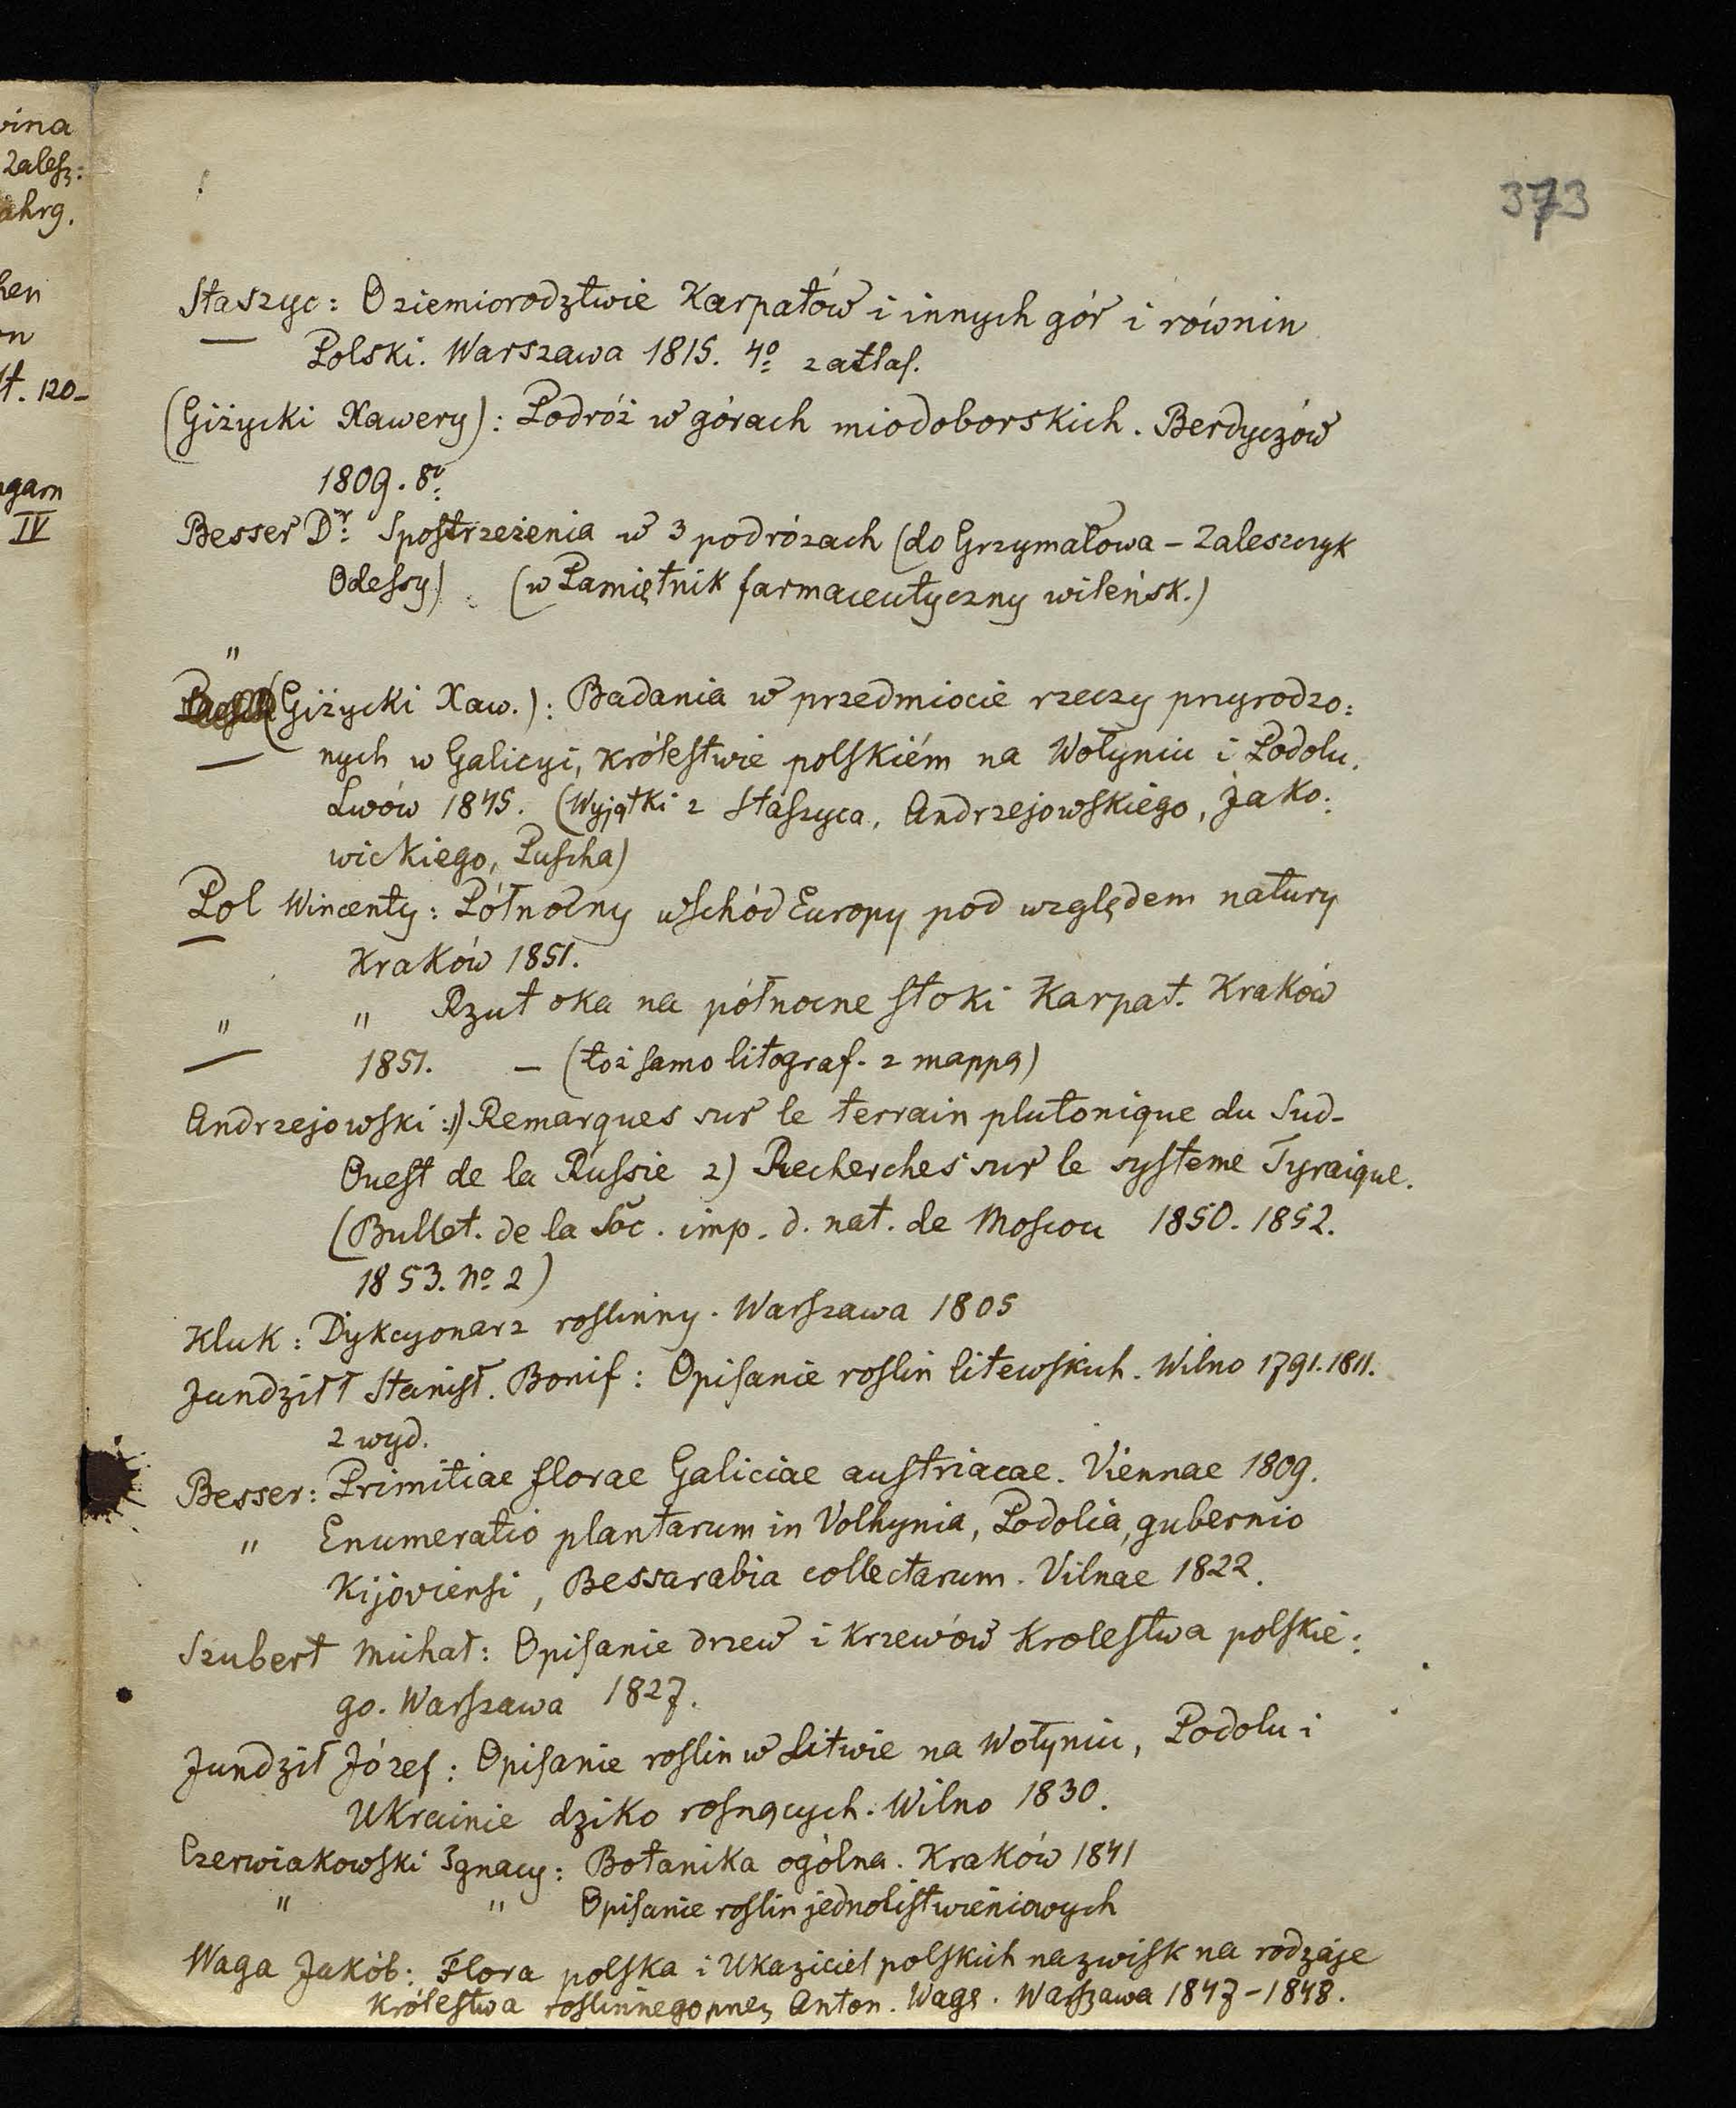 373
vina
Zalesz:
ahrg.
hen
on
st. 120-
ngarn
IV
Staszyc: O ziemiorodztwie Karpatów i innych gór i równin
Polski. Warszawa 1815. 4o z atlas.
(Giżycki Xawery): Podróż w górach miodoborskich. Berdyczów
1809. 8o
Besser Dr: Spostrzeżenia w 3 podrózach (do Grzymałowa - Zaleszczyk
Odessy) (w Pamiętnik farmaceutyczny wileńsk.)
"
(Giżycki Xaw.): Badania w przedmiocie rzeczy przyrodzo:
nych w Galicyi, królestwie polskiém na Wołyniu i Podolu.
Lwów 1845. (Wyjątki z Staszyca, Andrzejowskiego, Jako:
wickiego, Puscha)
Pol Wincenty: Północny wschód Europy pod względem natury
Kraków 1851.
" " Rzut oka na północne stoki Karpat. Kraków
1851. - (toż samo litograf. z mappą)
Andrzejowski: 1) Remarques sur le terrain plutonique du Sud-
Ouest de la Russie 2) Recherches sur le systeme Tyraique.
(Bullet. de la Soc. imp. d. nat. de Moscou 1850. 1852.
1853. No 2)
Kluk: Dykcyonarz roslinny. Warszawa 1805
Jundziłł Stanisł. Bonif: Opisanie roslin litewskich. Wilno 1791. 1811.
2 wyd.
Besser: Primitiae florae Galiciae austriacae. Viennae 1809.
" Enumeratio plantarum in Volhynia, Podolia, gubernio
Kijoviensi, Bessarabia collectarum. Vilnae 1822.
Szubert Michał: Opisanie drzew i krzewów Krolestwa polskie:
go. Warszawa 1827.
Jundził Józef: Opisanie roslin w Litwie na Wołyniu, Podolu i
Ukrainie dziko rosnących. Wilno 1830.
Czerwiakowski Ignacy: Botanika ogólna. Kraków 1841
" " Opisanie roslin jednolistwieniowych
Waga Jakób: Flora polska i Ukaziciel polskich nazwisk na rodzaje
królestwa roslinnego przez Anton. Wagę. Warszawa 1847-1848.